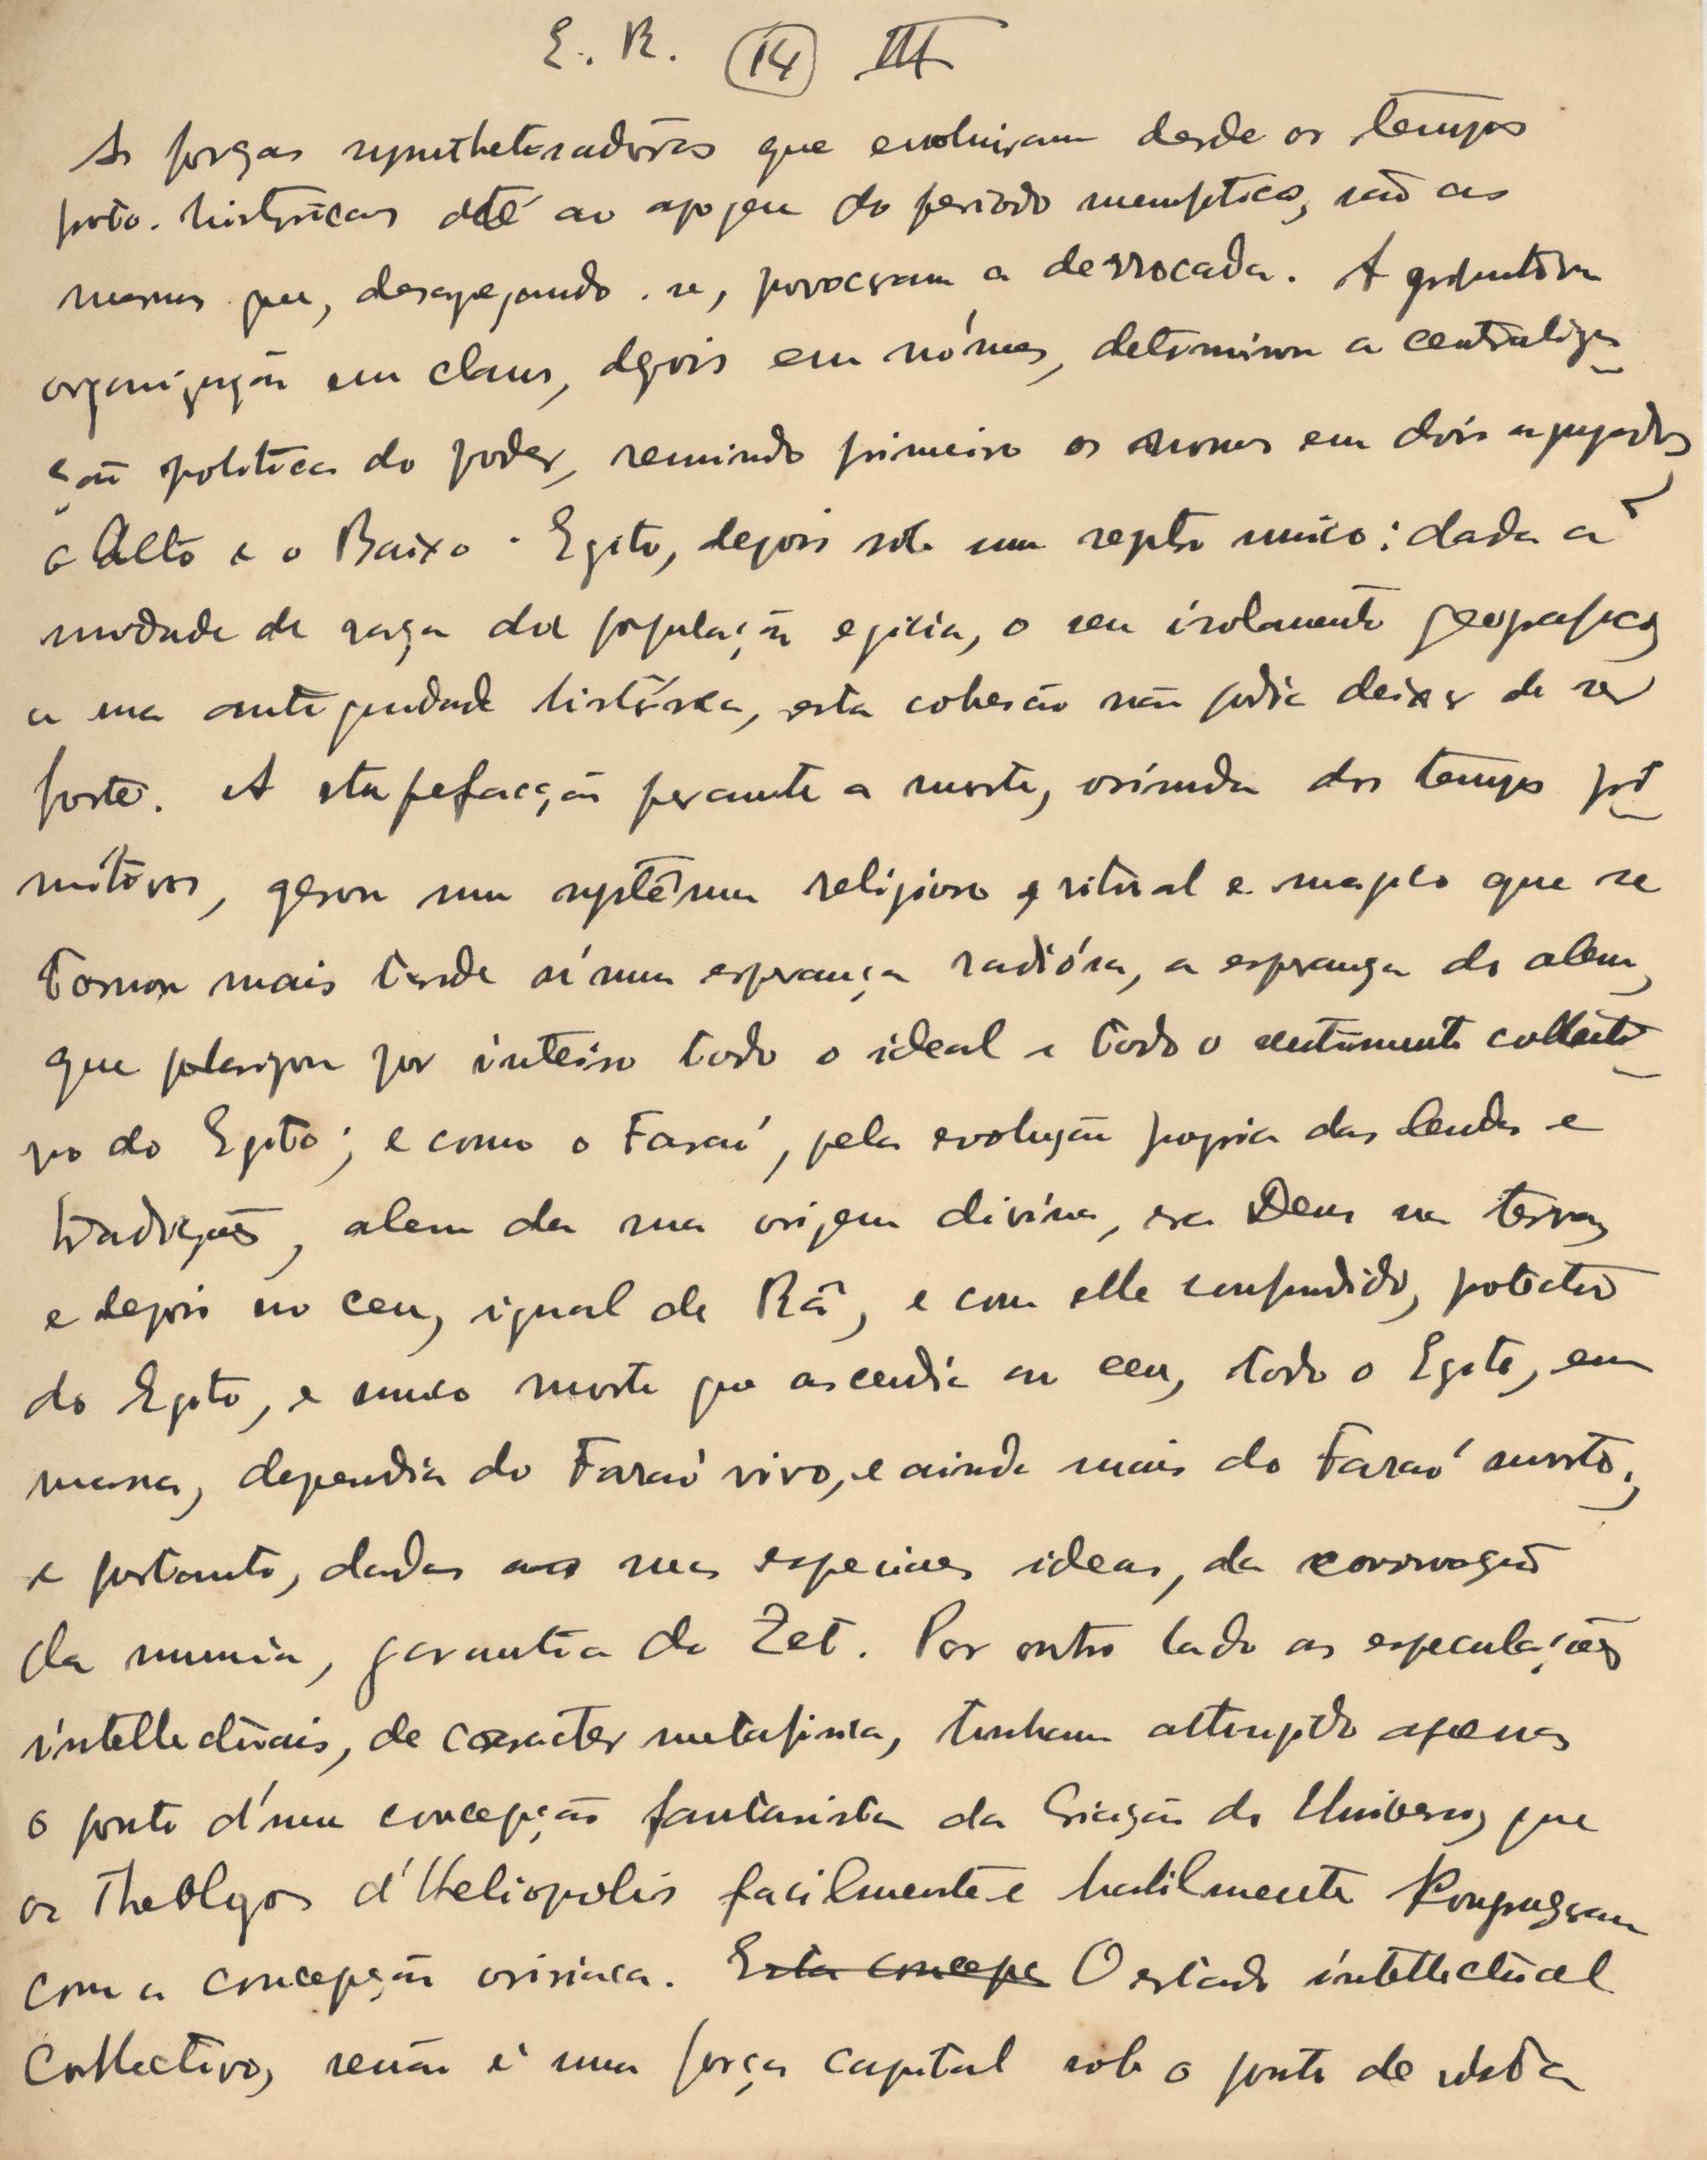 E. R. (14) III
As forças synthetisadôras que evoluiram desde os tempos
proto-historicos até ao apogeu do periodo memphitico, são as
mesmas que, desagregando-se, provocaram a derrocada. A
organização em clans, depois em nómes, determinou a centraliza-
ção politica do poder, reunindo primeiro os nomes em dois agregados,
o Alto e o Baixo-Egito, depois sob um sceptro unico: dada a
unidade de raça da população egicia, o seu isolamento geografico,
e sua antiguidade histórica, esta cohesão não podia deixar de ser
forte. A stupefacção perante a morte, oriunda dos tempos pri-
mitivos, gerou um systêma religioso ritual e magico que se
tornou mais tarde n'uma esperança radiósa, a esperança do alem,
que polarizou por inteiro todo o ideal e todo o sentimento collecti-
vo do Egito; e como o Faraó, pela evolução propria das lendas e
tradições, alem da sua origem divina, era Deus na terra,
e depois no ceu, igual de Râ, e com elle confundido, protector
do Egito, e unico morto que ascendia ao ceu, todo o Egito, em
massa, dependia do Faraó vivo, e ainda mais do Faraó morto;
e portanto, dadas as suas especiaes ideas, da conservação
da mumia, garantia do Zet. Por outro lado as especulações
intellectuais, de caracter metafisico, tinham attingido apenas
o ponto d'uma concepção fantasista da Criação do Universo, que
os Theologos d'Heliopolis facilmente e habilmente
com a concepção osiriaca. Esta concepç O estado intellectual
Collectivo, senão é uma força capital sob o ponto de vista